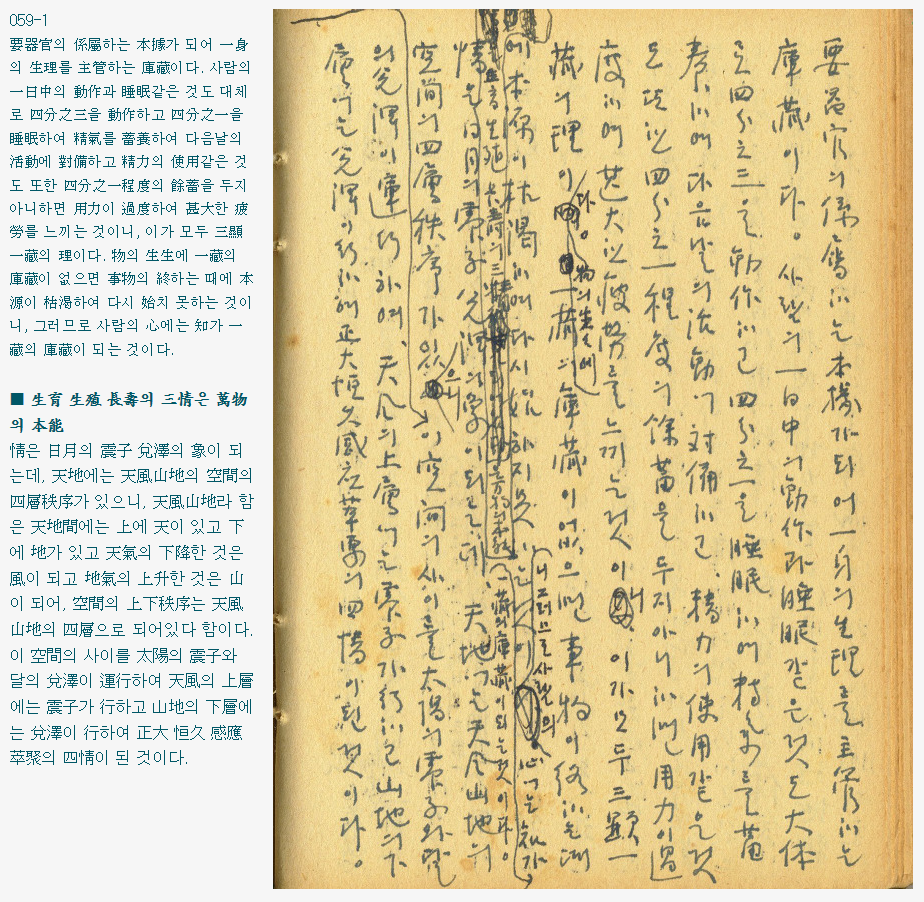 059-1
要器官의 係屬하는 本據가 되어 一身
의 生理를 主管하는 庫藏이다. 사람의
一日中의 動作과 睡眠같은 것도 대체
로 四分之三을 動作하고 四分之一을
睡眠하여 精氣를 蓄養하여 다음날의
活動에 對備하고 精力의 使用같은 것
도 또한 四分之一程度의 餘蓄을 두지
아니하면 用力이 過度하여 甚大한 疲
勞를 느끼는 것이니, 이가 모두 三顯
一藏의 理이다. 物의 生生에 一藏의
庫藏이 없으면 事物의 終하는 때에 本
源이 枯渴하여 다시 始치 못하는 것이
니, 그러므로 사람의 心에는 知가 一
藏의 庫藏이 되는 것이다.
■ 生育 生殖 長壽의 三情은 萬物
의 本能
情은 日月의 震子 兌澤의 象이 되
는데, 天地에는 天風山地의 空間의
四層秩序가 있으니, 天風山地라 함
은 天地間에는 上에 天이 있고 下
에 地가 있고 天氣의 下降한 것은
風이 되고 地氣의 上升한 것은 山
이 되어, 空間의 上下秩序는 天風
山地의 四層으로 되어있다 함이다.
이 空間의 사이를 太陽의 震子와
달의 兌澤이 運行하여 天風의 上層
에는 震子가 行하고 山地의 下層에
는 兌澤이 行하여 正大 恒久 感應
萃聚의 四情이 된 것이다.
要器官의係屬하는本據가되어一身의生理를主管하는
庫藏이다。사람의一日中의動作과睡眠같은것도大体
로四分之三을動作하고四分之一을睡眠하여精氣를蓄
養하여다음날의活動에対備하고精力의使用같은것
도또한四分之一程度의餘蓄을두지아니하면用力이過
度하여甚大한疲勞를느끼는것이니,이가모두三顯一
藏의理이다。物의生生에一藏의庫藏이없으면事物이終하는때
에本源이枯渴하여다시始하지못하는것이니그러므로사람의心에는知가
一藏의庫藏이되는것이다。
生育生殖長壽의三情은萬物의本能
情은日月의震子兌澤의象이되는데,天地에는天風山地의
空間의四層秩序가있으니이空間의사이를太陽의震子와달
의兌澤이運行하여,天風의上層에는震子가行하고山地의下
層에는兌澤이行하여正大恒久感应萃聚의四情이된것이다。